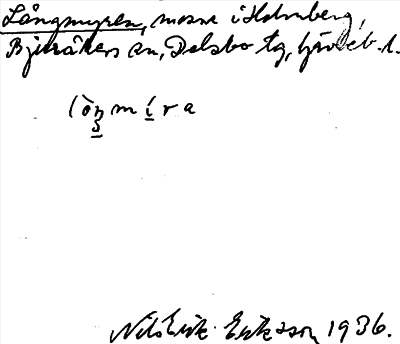 Långmyren, mosse i Holmberg,
Bjuråkers sn, Delsbo tg, Gävleb. l.
lòŋmíra
Nils Erik Eriksson 1936.